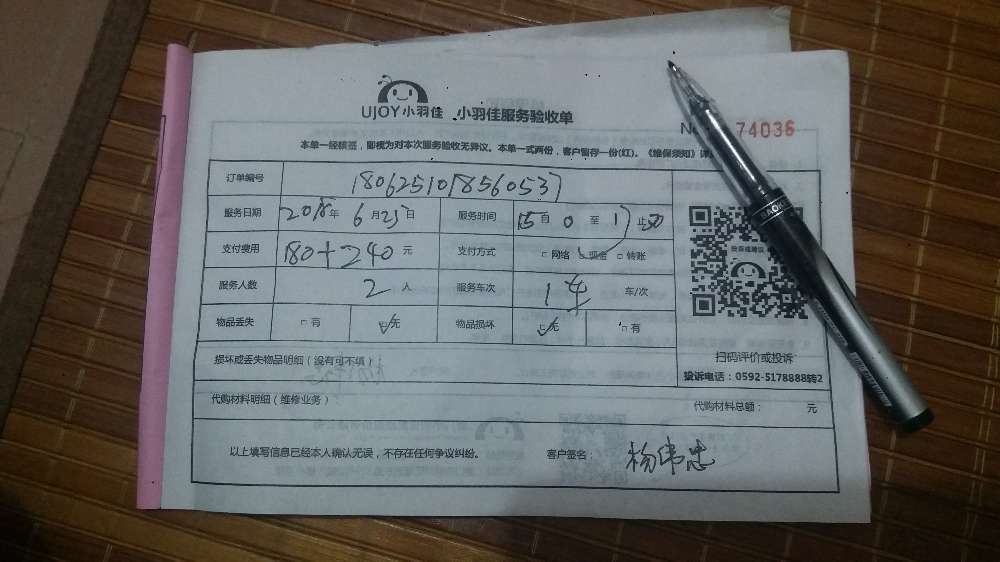 UJOY小羽佳 小羽佳服务验收单
74036
本单一经核签，即视为对本次服务验收无异议。本单一式两份，客户留存一份(红)。《维保须知》详
订单编号 1806251018560537
服务日期 2018年 6月25日 服务时间 15自 0 至 17 止
支付费用 180+240 元 支付方式 □网络 现金 □转账
服务人数 2 人 服务车次 1车 车/次
物品丢失 □有 无 物品损坏 无 □有
扫码评价或投诉
投诉电话：0592-5178888转2
损坏或丢失物品明细（没有可不填）：
代购材料明细（维修业务）： 代购材料总额： 元
以上填写信息已经本人确认无误，不存在任何争议纠纷。 客户签名： 杨伟忠